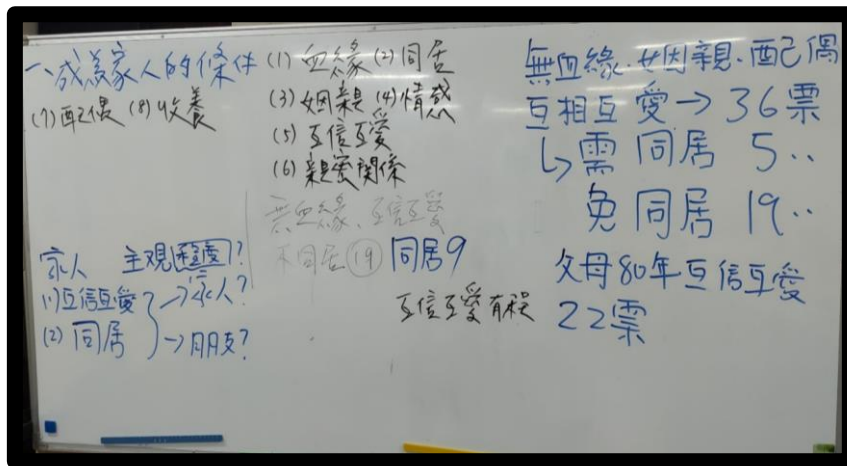 一、成為家人的條件
(1) 血緣 (2) 同居
(3) 姻親 (4) 情感
(5) 互信互愛
(6) 親密關係
(7) 配偶 (8) 收養
無血緣、互信互愛
不同居 19 同居9
互信互愛有程
家人 主觀程度?
(1) 互信互愛 → 家人?
(2) 同居 → 朋友?
無血緣.姻親.配偶
互相互愛→36票
↳需同居 5..
免同居 19..
父母80年互信互愛
22票